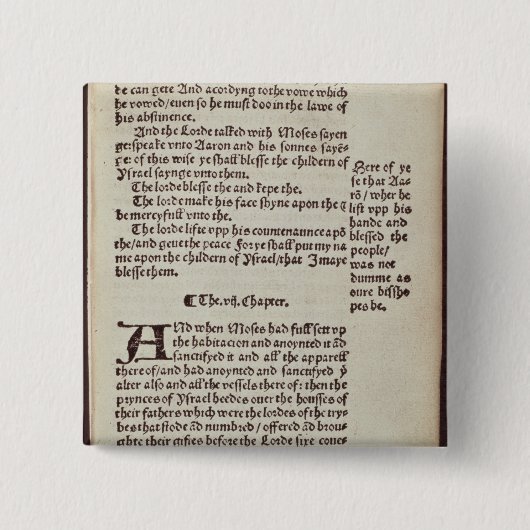 de can gete And acordyng to the vowe which
he vowed/even so he must doo in the lawe of
his abstinence.
And the Lorde talked with Moses sayen
ge: speake vnto Aaron and his sonnes sayē=
ge: of this wise ye shall blesse the childern of
Ysrael saynge vnto them.
The lorde blesse the and kepe the.
The lorde make his face shyne apon the ⁊
be mercyfull vnto the.
The lorde lifte vpp his countenaunce apō
the/and geue the peace For ye shall put my na
me apon the childern of Ysrael/that I maye
blesse them.
Here of ye
se that Aa-
rō/ wher he
lift vpp his
hande and
blessed the
people/
was not
dumme as
oure bissho
pes be.
¶ The .vij. Chapter.
ANd when Moses had full sett vp
the habitacion and anoynted it ād
sanctifyed it and all the apparell
there of/and had anoynted and sanctifyed yͤ
alter also and all the vessels there of: then the
prynces of Ysrael heedes ouer the housses of
their fathers which were the lordes of the try=
bes that stode ād numbred/ offered ād brou=
ghte their giftes before the Lorde sixe couer